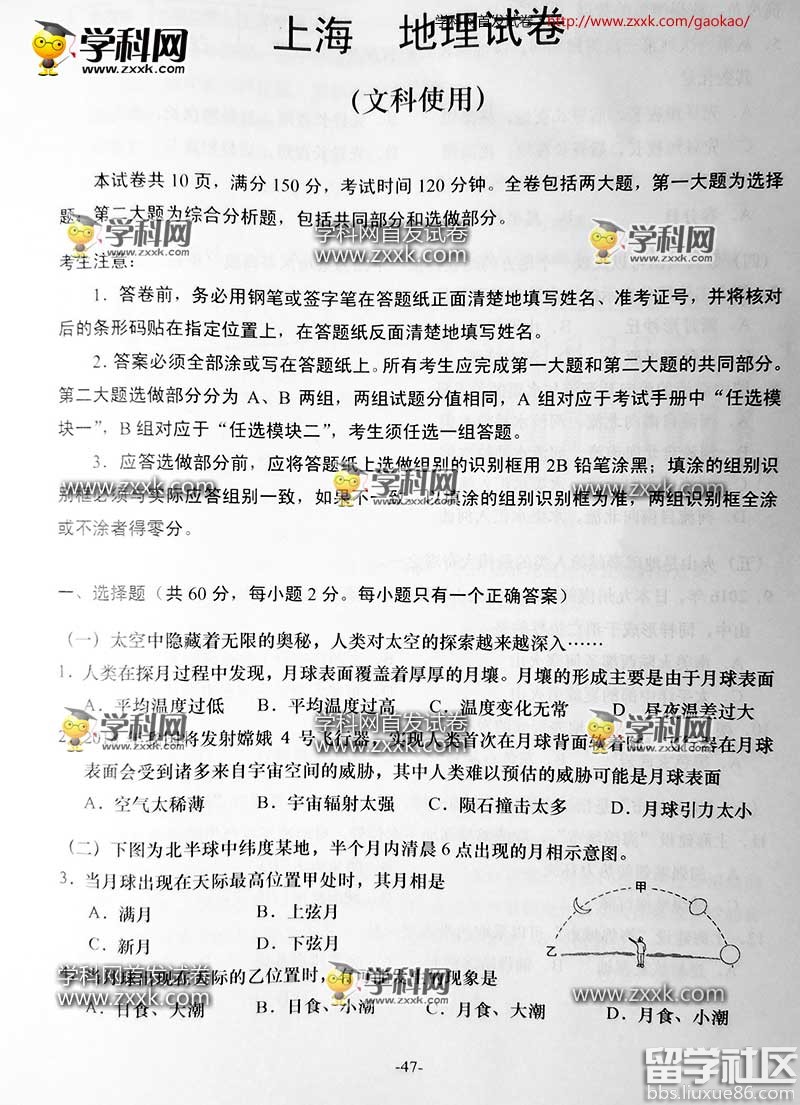 学科网首发试卷 http://www.zxxk.com/gaokao/
学科网
www.zxxk.com
上海 地理试卷
(文科使用)
本试卷共 10 页，满分 150 分，考试时间 120 分钟。全卷包括两大题，第一大题为选择
题；第二大题为综合分析题，包括共同部分和选做部分。
学科网
www.zxxk.com
学科网首发试卷
www.zxxk.com
学科网
www.zxxk.com
考生注意：
1．答卷前，务必用钢笔或签字笔在答题纸正面清楚地填写姓名、准考证号，并将核对
后的条形码贴在指定位置上，在答题纸反面清楚地填写姓名。
2．答案必须全部涂或写在答题纸上。所有考生应完成第一大题和第二大题的共同部分。
第二大题选做部分分为 A、B 两组，两组试题分值相同，A 组对应于考试手册中“任选模
块一”，B 组对应于“任选模块二”，考生须任选一组答题。
3．应答选做部分前，应将答题纸上选做组别的识别框用 2B 铅笔涂黑；填涂的组别识
别框必须与实际应答组别一致，如果不一致 填涂的组别识别框为准，两组识别框全涂
或不涂者得零分。
学科网首发试卷
www.zxxk.com
学科网
www.zxxk.com
学科网首发试卷
www.zxxk.com
一、选择题（共 60 分，每小题 2 分。每小题只有一个正确答案）
（一）太空中隐藏着无限的奥秘，人类对太空的探索越来越深入……
1．人类在探月过程中发现，月球表面覆盖着厚厚的月壤。月壤的形成主要是由于月球表面
A．平均温度过低 B．平均温度过高 C．温度变化无常 D．昼夜温差过大
学科网
www.zxxk.com
学科网首发试卷
www.zxxk.com
学科网
www.zxxk.com
2. 将发射嫦娥 4 号飞行器，实现人类首次在月球背面 器在月球
表面会受到诸多来自宇宙空间的威胁，其中人类难以预估的威胁可能是月球表面
A．空气太稀薄 B．宇宙辐射太强 C．陨石撞击太多 D．月球引力太小
（二）下图为北半球中纬度某地，半个月内清晨 6 点出现的月相示意图。
3．当月球出现在天际最高位置甲处时，其月相是
A．满月 B．上弦月
C．新月 D．下弦月
甲
乙
当月球出现在天际的乙位置时，有可 现象是
A．日食、大潮 B．日食、小潮 C．月食、大潮 D．月食、小潮
学科网首发试卷
www.zxxk.com
学科网
www.zxxk.com
学科网首发试卷
www.zxxk.com
-47-
留学社区
bbs.liuxue86.com